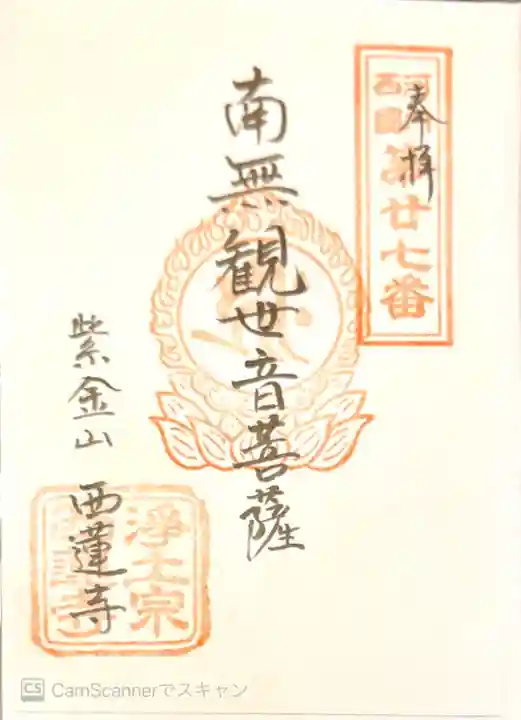 奉拝
西國
第廿七番
南無観世音菩薩
紫金山 西蓮寺
浄土宗
西蓮寺
CS CamScannerでスキャン